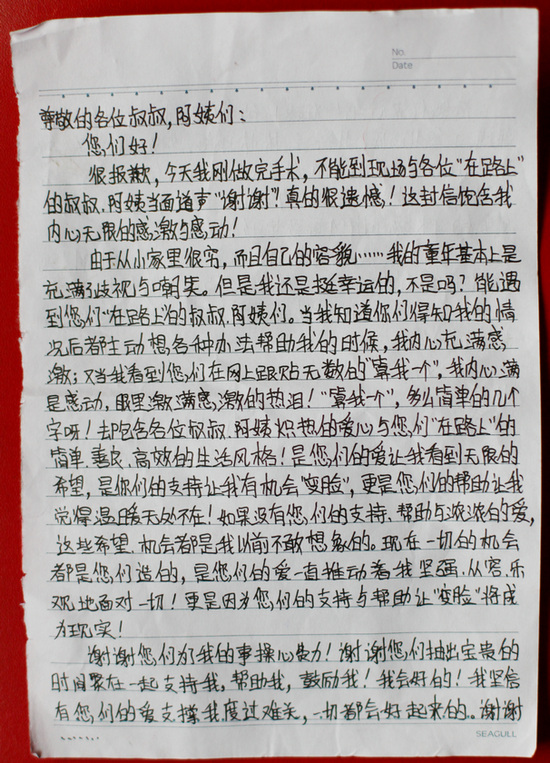 No.
Date
尊敬的各位叔叔,阿姨们:
您们好!
很报歉,今天我刚做完手术,不能到现场与各位"在路上"
的叔叔、阿姨当面道声"谢谢"!真的很遗憾!这封信饱含我
内心无限的感激与感动!
由于从小家里很穷,而且自己的容貌……我的童年基本上是
充满了歧视与嘲笑。但是我还是挺幸运的,不是吗?能遇
到您们"在路上"的叔叔、阿姨们。当我知道你们得知我的情
况后都主动想各种办法帮助我的时候,我内心充满感
激;又当我看到您们在网上跟贴无数的"算我一个",我内心满
是感动,眼里激满感激的热泪!"算我一个",多么简单的几个
字呀!去包含各位叔叔、阿姨炽热的爱心与您们"在路上"的
简单、善良、高效的生活风格!是您们的爱让我看到无限的
希望,是你们的支持让我有机会"变脸",更是您们的帮助让我
觉得温暖无处不在!如果没有您们的支持、帮助与浓浓的爱,
这些希望、机会都是我以前不敢想象的。现在一切的机会
都是您们造的,是您们的爱一直推动着我坚强、从容、乐
观地面对一切!更是因为您们的支持与帮助让"变脸"将成
为现实!
谢谢您们为了我的事操心费力!谢谢您们抽出宝贵的
时间聚在一起支持我,帮助我,鼓励我!我会好的!我坚信
有您们的爱支撑我度过难关,一切都会好起来的。谢谢
SEAGULL